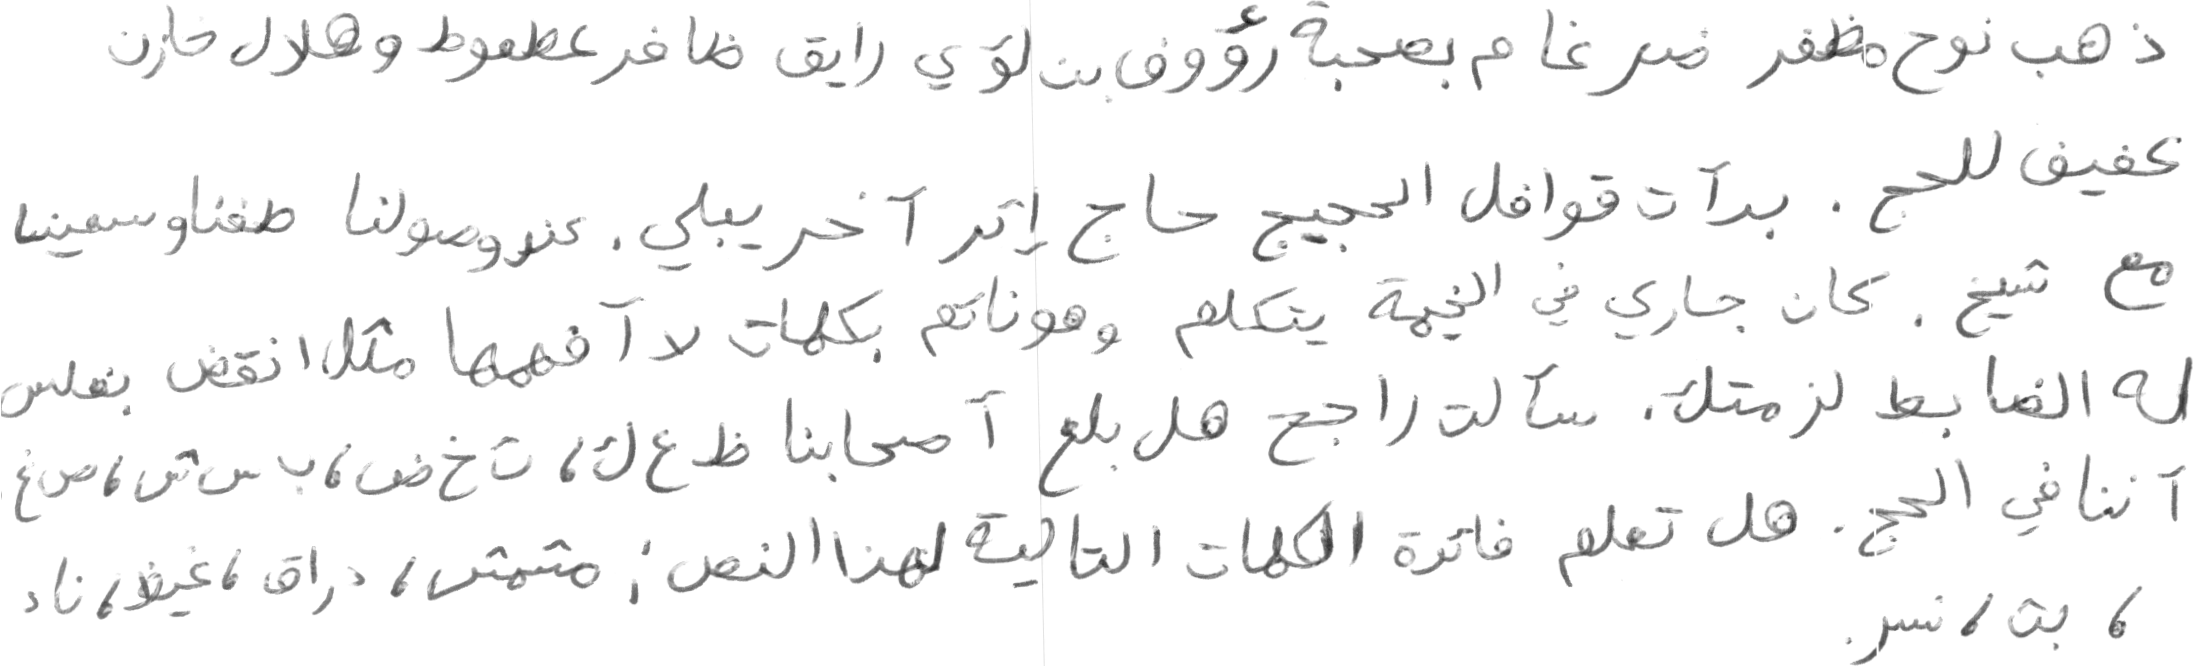 ذهب نوح مظفر ضرغام بصحبة رؤوف بن لؤي رايق ظافر عطعوط وهلال خازن
عفيف للحج. بدأت قوافل الحجيج حاج إثر آخر يبلي. عند وصولنا طفنا وسعينا
مع شيخ. كان جاري في الخيمة يتكلم وهو نائم بكلمات لا أفهمها مثلا نقض بعلس
له الضابط لزمتك. سألت راجح هل بلغ أصحابنا ظ ع ك، ث خ ض، ب س ش، ص غ
أننا في الحج. هل تعلم فائدة الكلمات التالية لهذا النص؛ مشمش، دراق، غيظ، ناد
، بث، نسر.